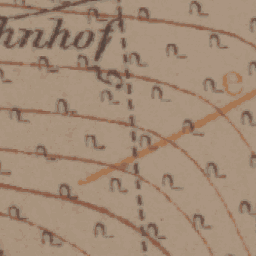 hnhof
e